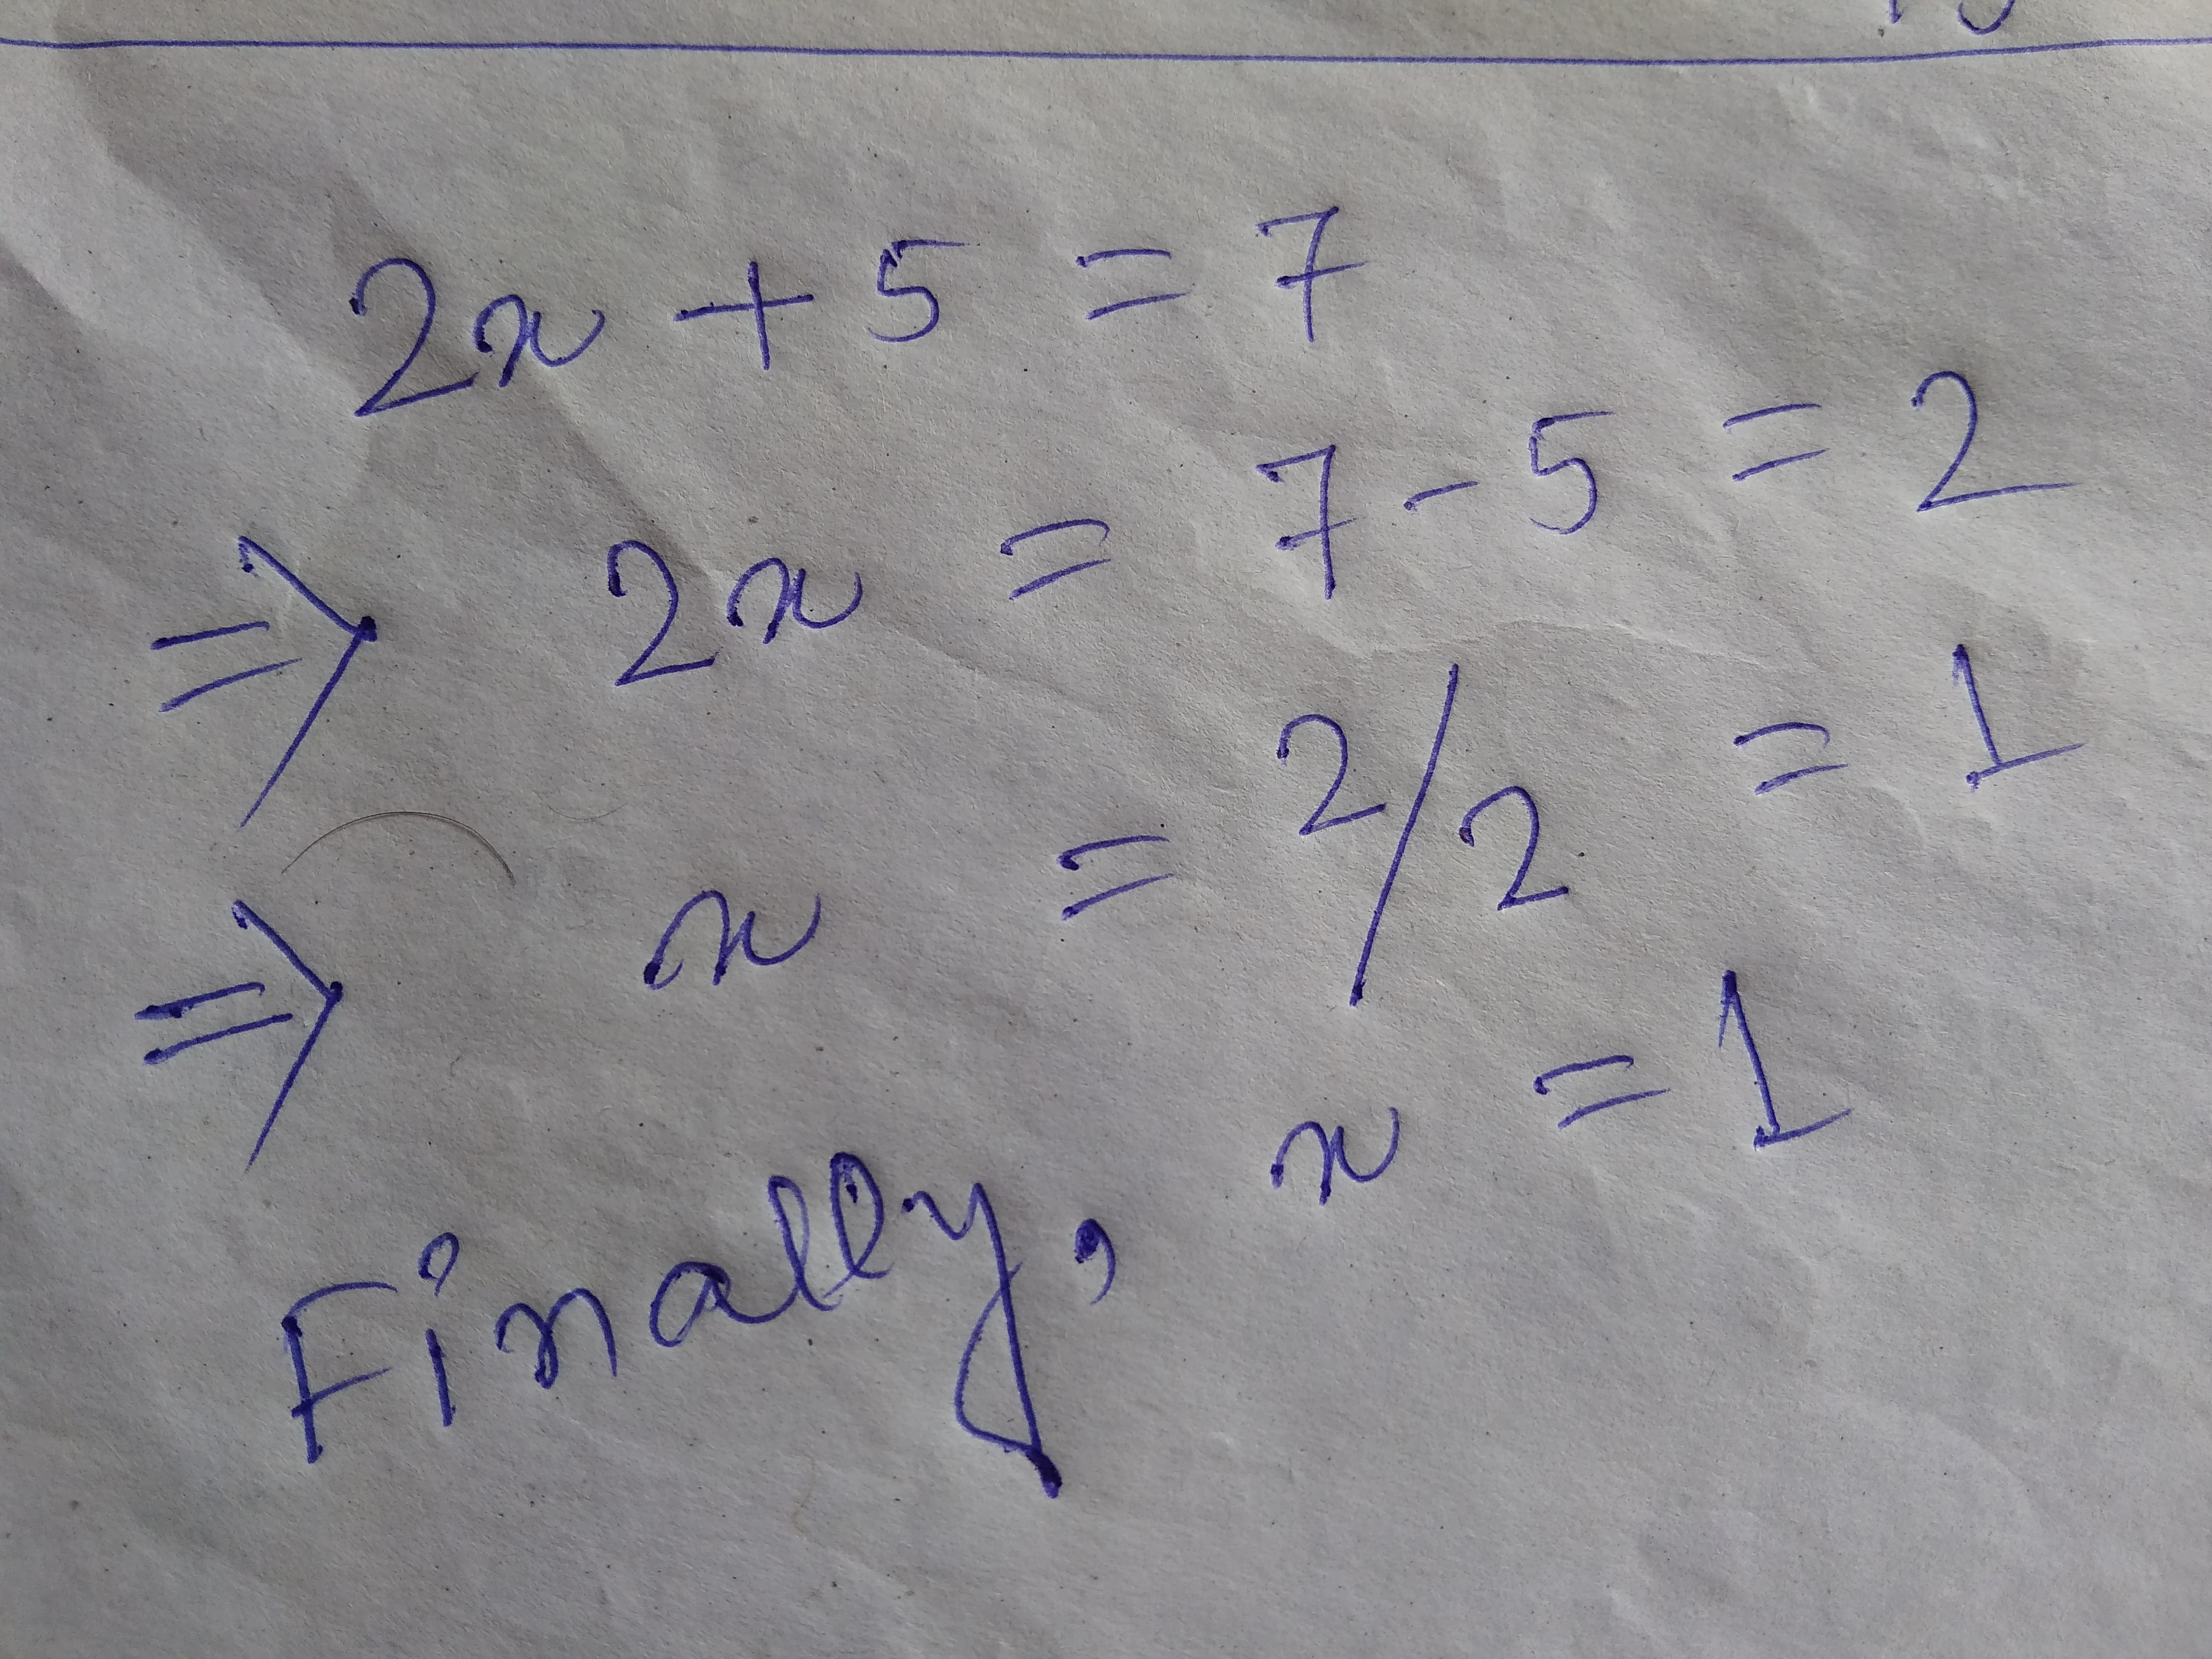 2x + 5 = 7
⇒ 2x = 7 - 5 = 2
⇒ x = 2/2 = 1
Finally, x = 1